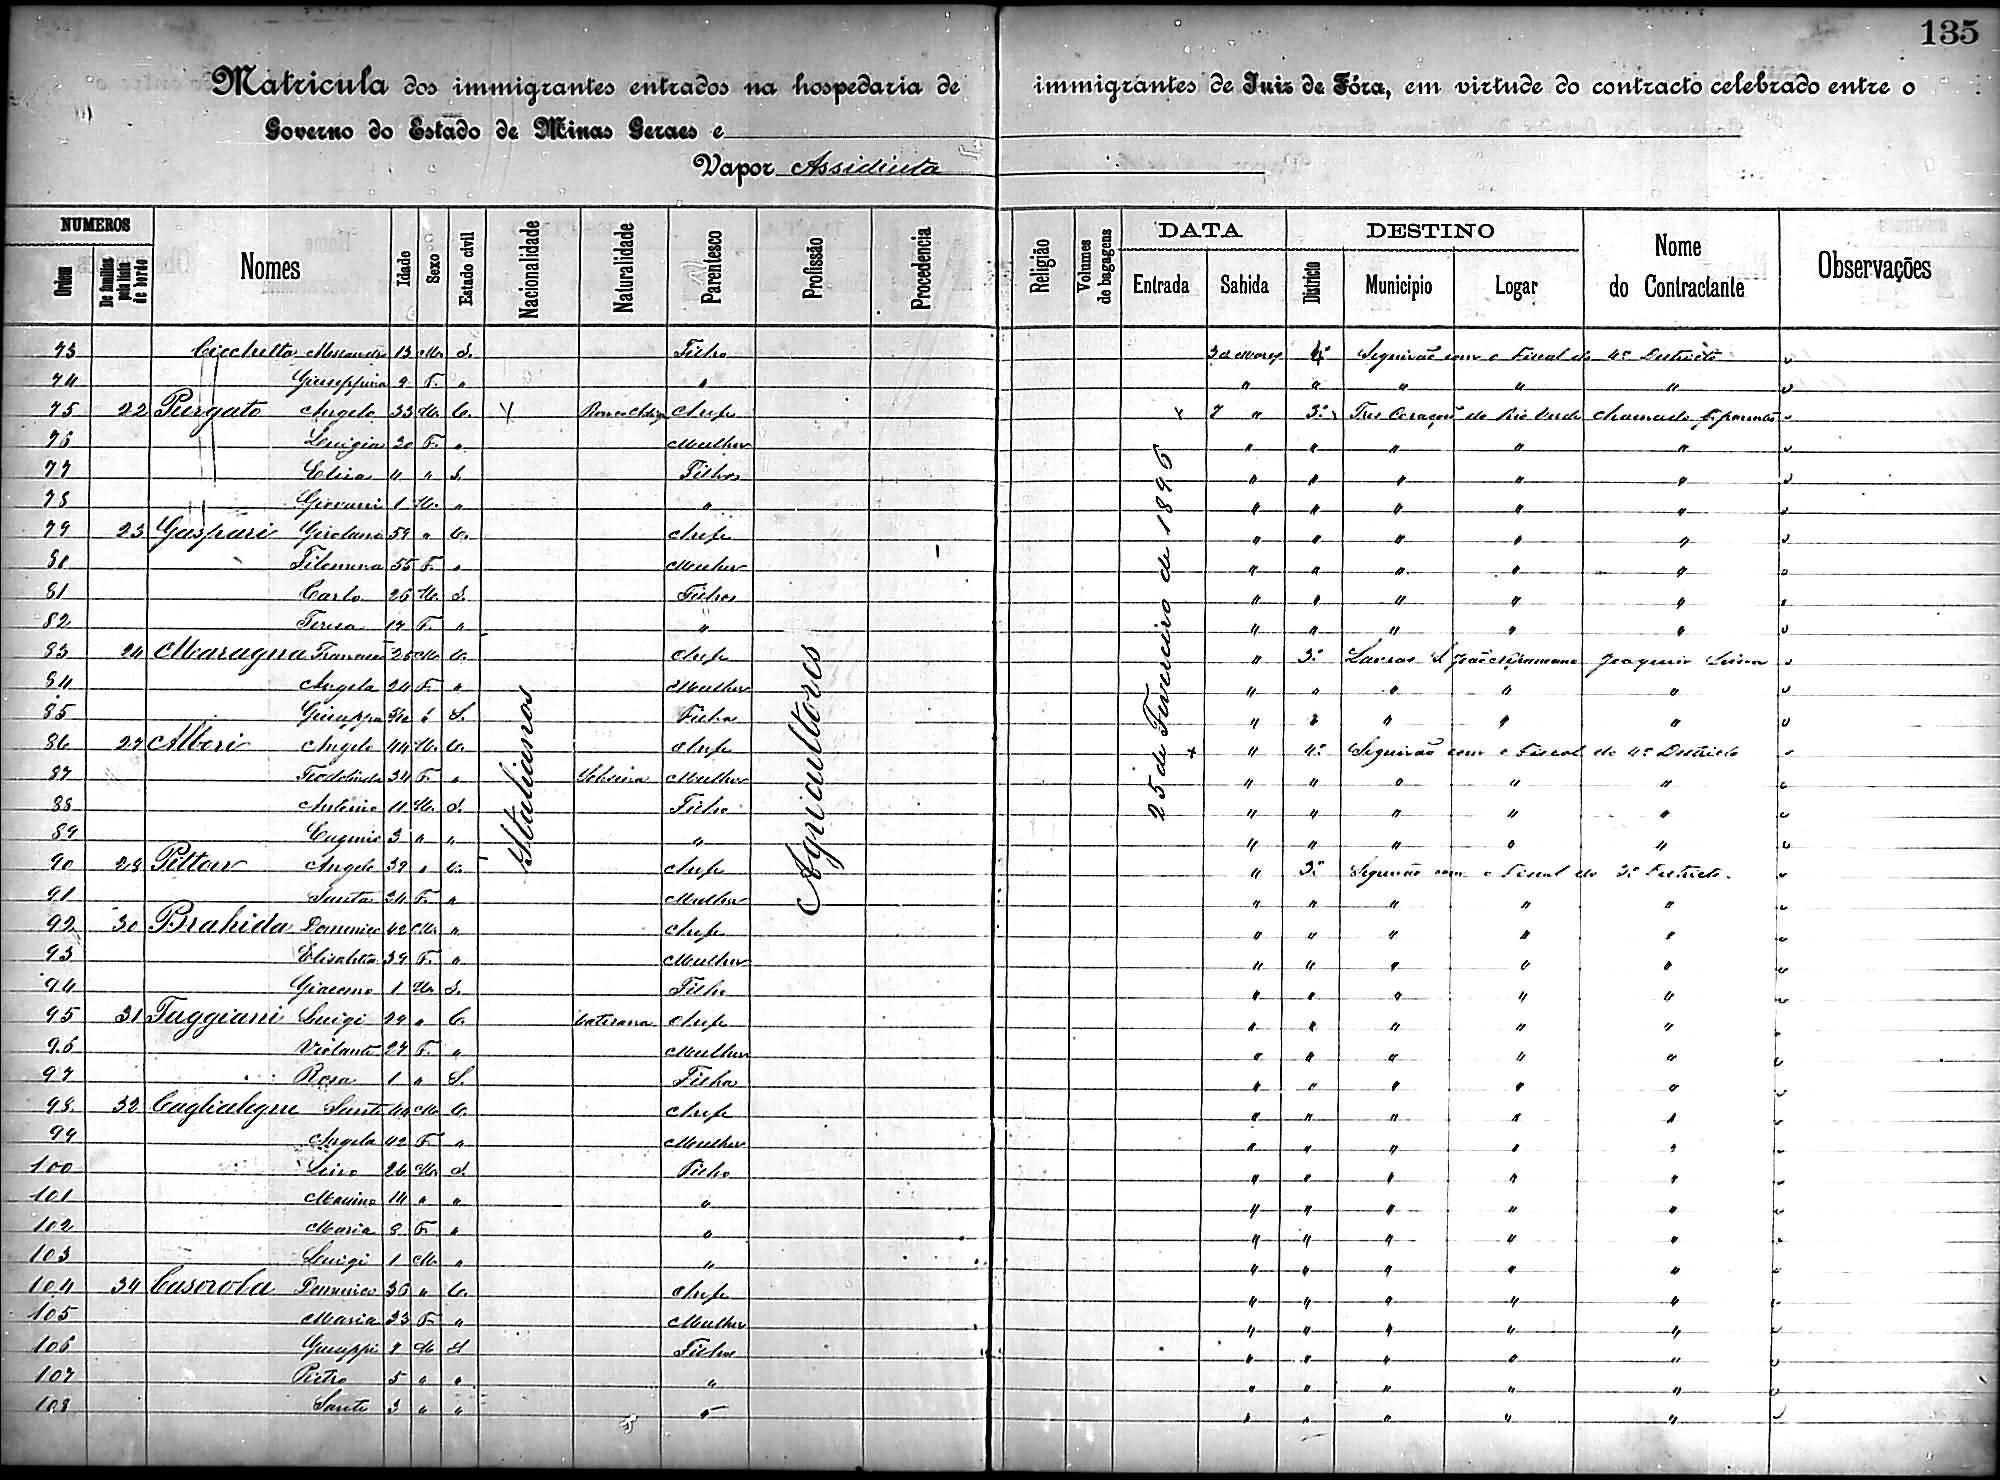 135
Matricula dos immigrantes entrados na hospedaria de immigrantes de Juiz de Fóra, em virtude do contracto celebrado entre o
Governo do Estado de Minas Geraes e
Vapor Assiduita
NUMEROS
Ordem De familias pela lista de bordo Nomes Idade Sexo Estado civil Nacionalidade Naturalidade Parentesco Profissão Procedencia Religião Volumes de bagagens DATA Entrada Sahida DESTINO Districto Municipio Logar Nome do Contractante Observações
Italianos
Agricultores
25 de Fevereiro de 1896
73 Cicchetta 13 M. S. Filho 3 de Março 4º Seguirão com o Fiscal do 4º Districto
74 Giuseppina 9 F. " " " " " " "
75 22 Purgato Angelo 33 M. C. Chefe 7 " 3º Tres Corações do Rio Verde Chamado p. parentes
76 Luigia 30 F. " Mulher " " " " "
77 Elisa 4 " S. Filhos " " " " "
78 Giovanni 1 M. " " " " " " "
79 23 Gaspari Girolamo 59 " C. Chefe " " " " "
80 Filomena 55 F. " Mulher " " " " "
81 Carlo 26 M. S. Filhos " " " " "
82 Teresa 17 F. " " " " " " "
83 24 Maragna Francesco 25 M. C. Chefe " 3º Lavras Joaquim
84 Angela 24 F. " Mulher " " " " "
85 Giuseppa S. Filha " " " " "
86 27 Alberi Angelo 44 M. C. Chefe " 4º Seguirão com o Fiscal do 4º Districto
87 Teodolinda 34 F. " Mulher " " " " "
88 Antonio 11 M. S. Filho " " " " "
89 Eugenio 3 " " " " " " " "
90 28 Pitton Angelo 39 " C. Chefe " 3º Seguirão com o Fiscal do 3º Districto.
91 Santa 34 F. " Mulher " " " " "
92 30 Brahida Domenico 42 M. " Chefe " " " " "
93 Elisabetta 39 F. " Mulher " " " " "
94 Giacomo 1 M. S. Filho " " " " "
95 31 Fuggiani Luigi 29 " C. Chefe " " " " "
96 Violante 27 F. " Mulher " " " " "
97 Rosa 1 " S. Filha " " " " "
98 32 Caglialegne Sante 44 M. C. Chefe " " " " "
99 Angela 42 F. " Mulher " " " " "
100 26 M. S. Filho " " " " "
101 14 " " " " " " " "
102 Maria 8 F. " " " " " " "
103 Luigi 1 M. " " " " " " "
104 34 Casorola Domenico 36 " C. Chefe " " " " "
105 Maria 33 F. " Mulher " " " " "
106 Giuseppe 7 M S Filhos " " " " "
107 Pietro 5 " " " " " " " "
108 Sante 3 " " " " " " " "